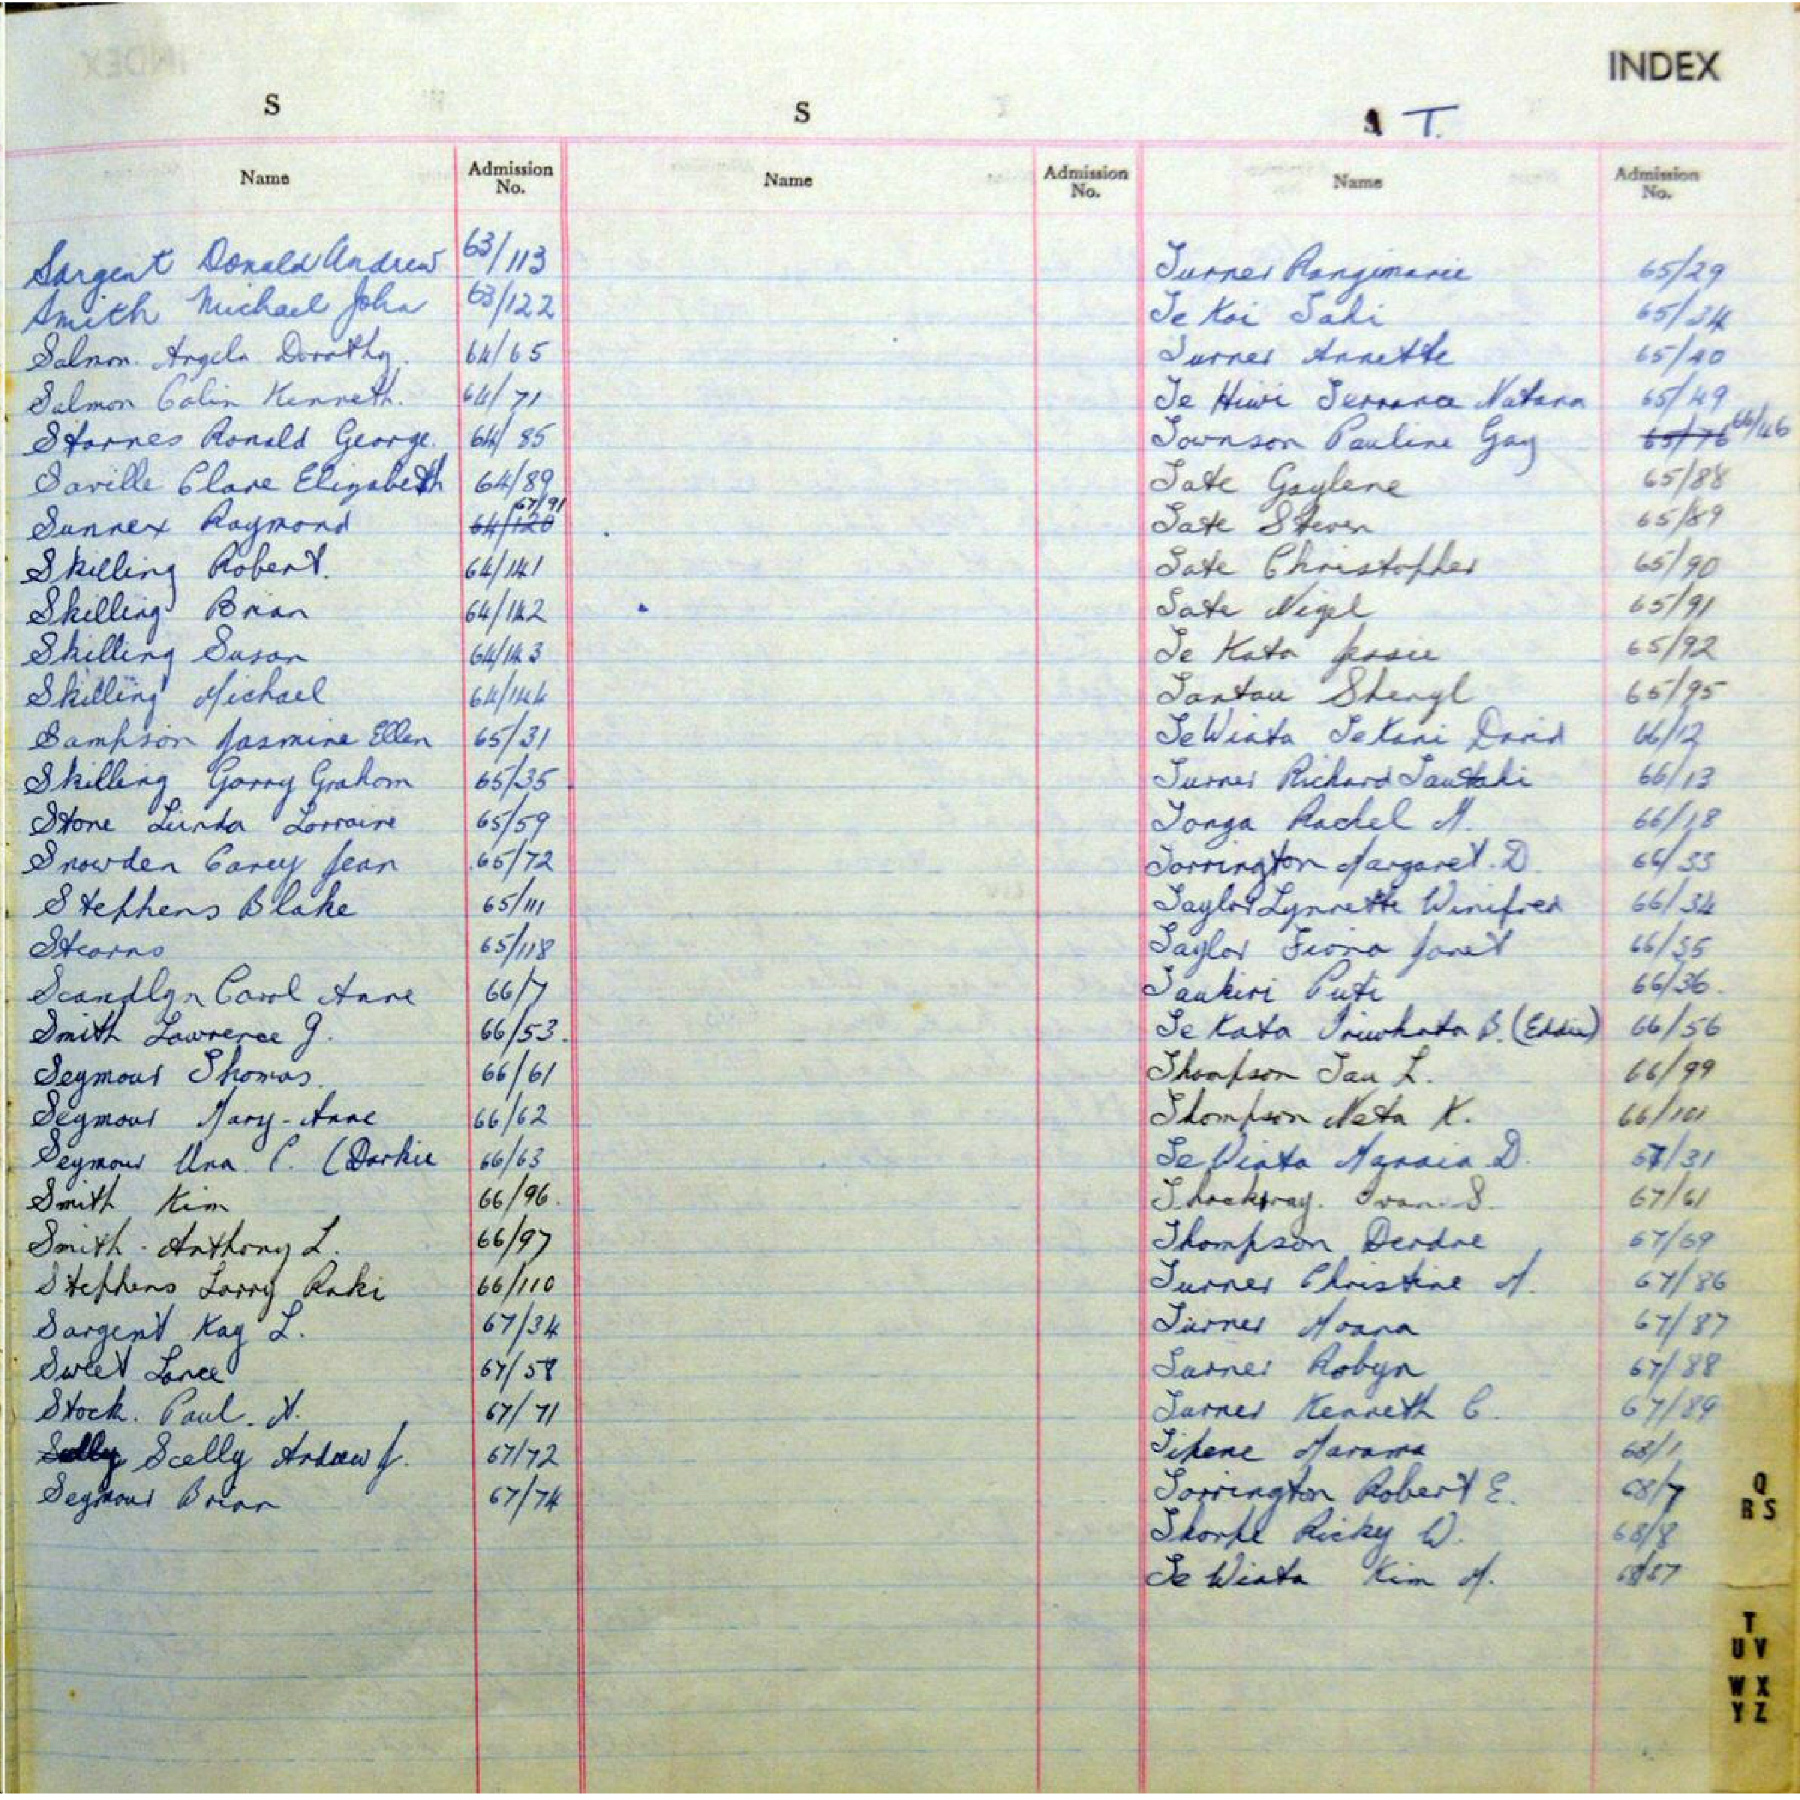 INDEX
S
S
T.
Name
Admission No.
Name
Admission No.
Name
Admission No.
Sargent Donald Andrew 63/113
Smith Michael John 63/122
Salmon Angela Dorothy. 64/65
Salmon Colin Kenneth. 64/71
Starnes Ronald George. 64/85
Saville Clare Elizabeth 64/89
Sunnex Raymond 64/120 67/91
Skilling Robert. 64/141
Skilling Brian 64/142
Skilling Susan 64/143
Skilling Michael 64/144
Sampson Jasmine Ellen 65/31
Skilling Garry Graham 65/35
Stone Linda Lorraine 65/59
Snowden Carey Jean 65/72
Stephens Blake 65/111
Stearns 65/118
Scandlyn Carol Anne 66/7
Smith Lawrence G. 66/53.
Seymour Thomas 66/61
Seymour Mary-Anne 66/62
Seymour Una C. (Darkie 66/63
Smith Kim 66/96.
Smith Anthony L. 66/97
Stephens Larry Raki 66/110
Sargent Kay L. 67/34
Sweet Lance 67/58
Stock. Paul. N. 67/71
Scelly Andrew J. 67/72
Seymour Brian 67/74
Turner Rangimarie 65/29
Te Koi Tahi 65/34
Turner Annette 65/40
Te Hiwi Terrance Natana 65/49
Townson Pauline Gay 65/76 66/46
Tate Gaylene 65/88
Tate Steven 65/89
Tate Christopher 65/90
Tate Nigel 65/91
Te Kata Jessie 65/92
Tantau Sheryl 65/95
Te Wiata Te Kani David 66/12
Turner Richard Tautahi 66/13
Tonga Rachel M. 66/18
Torrington Margaret. D. 66/33
Taylor Lynnette Winifred 66/34
Taylor Fiona Janet 66/35
Taukiri Puti 66/36.
Te Kata B. (Eddie) 66/56
Thompson Tau L. 66/99
Thompson Neta K. 66/101
Te Wiata D. 67/31
S. 67/61
Thompson Derdre 67/69
Turner Christine M. 67/86
Turner Moana 67/87
Turner Robyn 67/88
Turner Kenneth C. 67/89
Tihene Marama 68/1
Torrington Robert E. 68/7
Thorpe Ricky W. 68/8
Te Wiata Kim M. 68/57
Q
R S
T
U V
W X
Y Z